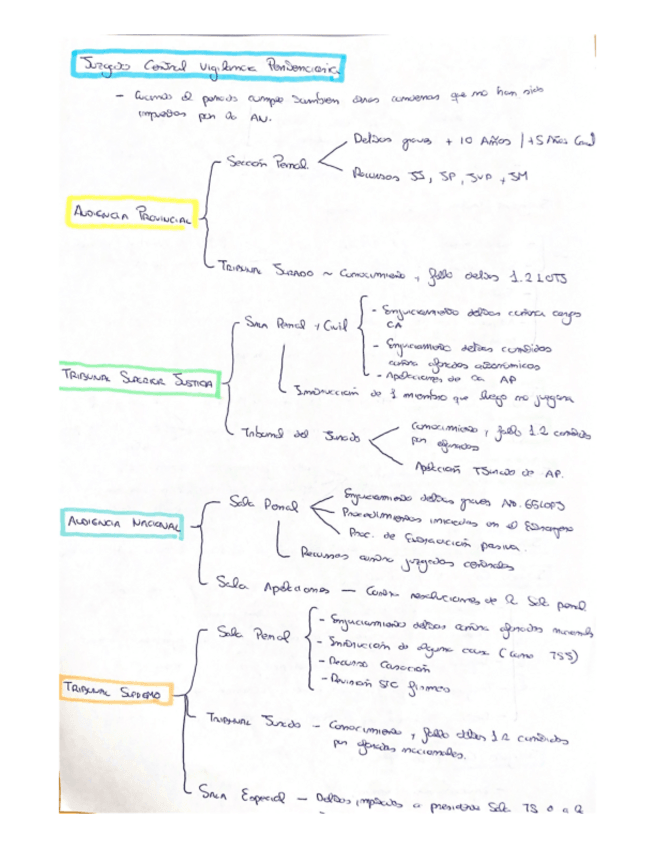 Juzgado Central Vigilancia Penitenciaria
- Cuando el penado cumple también otras condenas que no han sido
impuestas por la AN.
Delitos graves + 10 Años / +5 Años
Sección Penal
Recursos JI, JP, JVP, JM
AUDIENCIA PROVINCIAL
TRIBUNAL JURADO ~ Conocimiento y fallo delitos 1.2 LOTJ
SALA Penal y Civil
- Enjuiciamiento delitos contra cargos
CA
- Enjuiciamiento delitos cometidos
contra aforados autonómicos
- Apelaciones de la AP
TRIBUNAL SUPERIOR JUSTICIA
Instrucción de 1 miembro que luego no juzgará
Tribunal del Jurado
Conocimiento y fallo 1.2 cometidos
por aforados
Apelación TJurado de AP.
Sala Penal
Enjuiciamiento delitos graves Art. 65 LOPJ
Procedimientos iniciados en el Extranjero
Proc. de Extradición pasiva.
AUDIENCIA NACIONAL
Recursos contra juzgados centrales
Sala Apelaciones — Contra resoluciones de la Sala penal
Sala Penal
- Enjuiciamiento delitos contra aforados nacionales
- Instrucción de alguna causa (como TSJ)
- Recurso Casación
- Revisión STC firmes
TRIBUNAL SUPREMO
TRIBUNAL Jurado - Conocimiento y fallo delitos 1.2 cometidos
por aforados nacionales.
SALA Especial — Delitos imputados a presidente Sala TS o a la